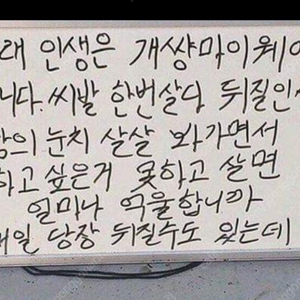 래 인생은 개썅마이웨이
니다. 씨발 한번살다 뒤질인생
람의 눈치 살살 봐가면서
하고 싶은거 못하고 살면
얼미나 억울합니까
내일 당장 뒤질수도 있는데